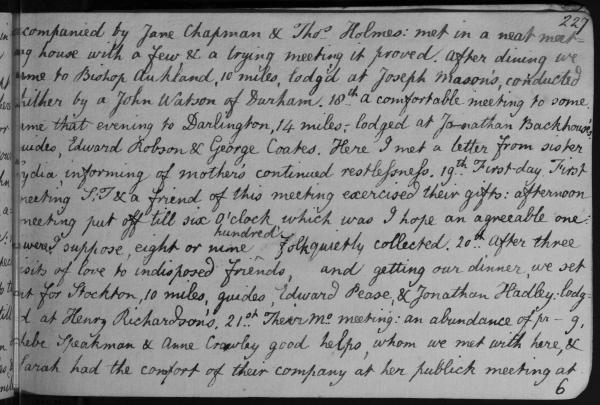 227
accompanied by Jane Chapman & Thos. Holmes: met in a neat meet-
ing house with a few & a trying meeting it proved. After dining we
came to Bishop Aukland, 10 miles, lodg'd at Joseph Mason's, conducted
thither by a John Watson of Durham. 18th a comfortable meeting to some.
came that evening to Darlington, 14 miles; lodged at Jonathan Backhouse's
guides, Edward Robson & George Coates. Here I met a letter from sister
Lydia, informing of mother's continued restlessness. 19th. First-day. First
meeting S:T & a friend of this meeting exercised their gifts: afternoon
meeting put off till six o'clock which was I hope an agreeable one:
were I suppose, eight or nine hundred folk quietly collected. 20th. After three
visits of love to indisposed friends, and getting our dinner, we set
out for Stockton, 10 miles, guides, Edward Pease, & Jonathan Hadley: lodg-
d at Henry Richardson's. 21st. Their Mo. meeting: an abundance of pr - g,
Phebe Speakman & Anne Crawley good helps, whom we met with here, &
Sarah had the comfort of their company at her publick meeting at
6